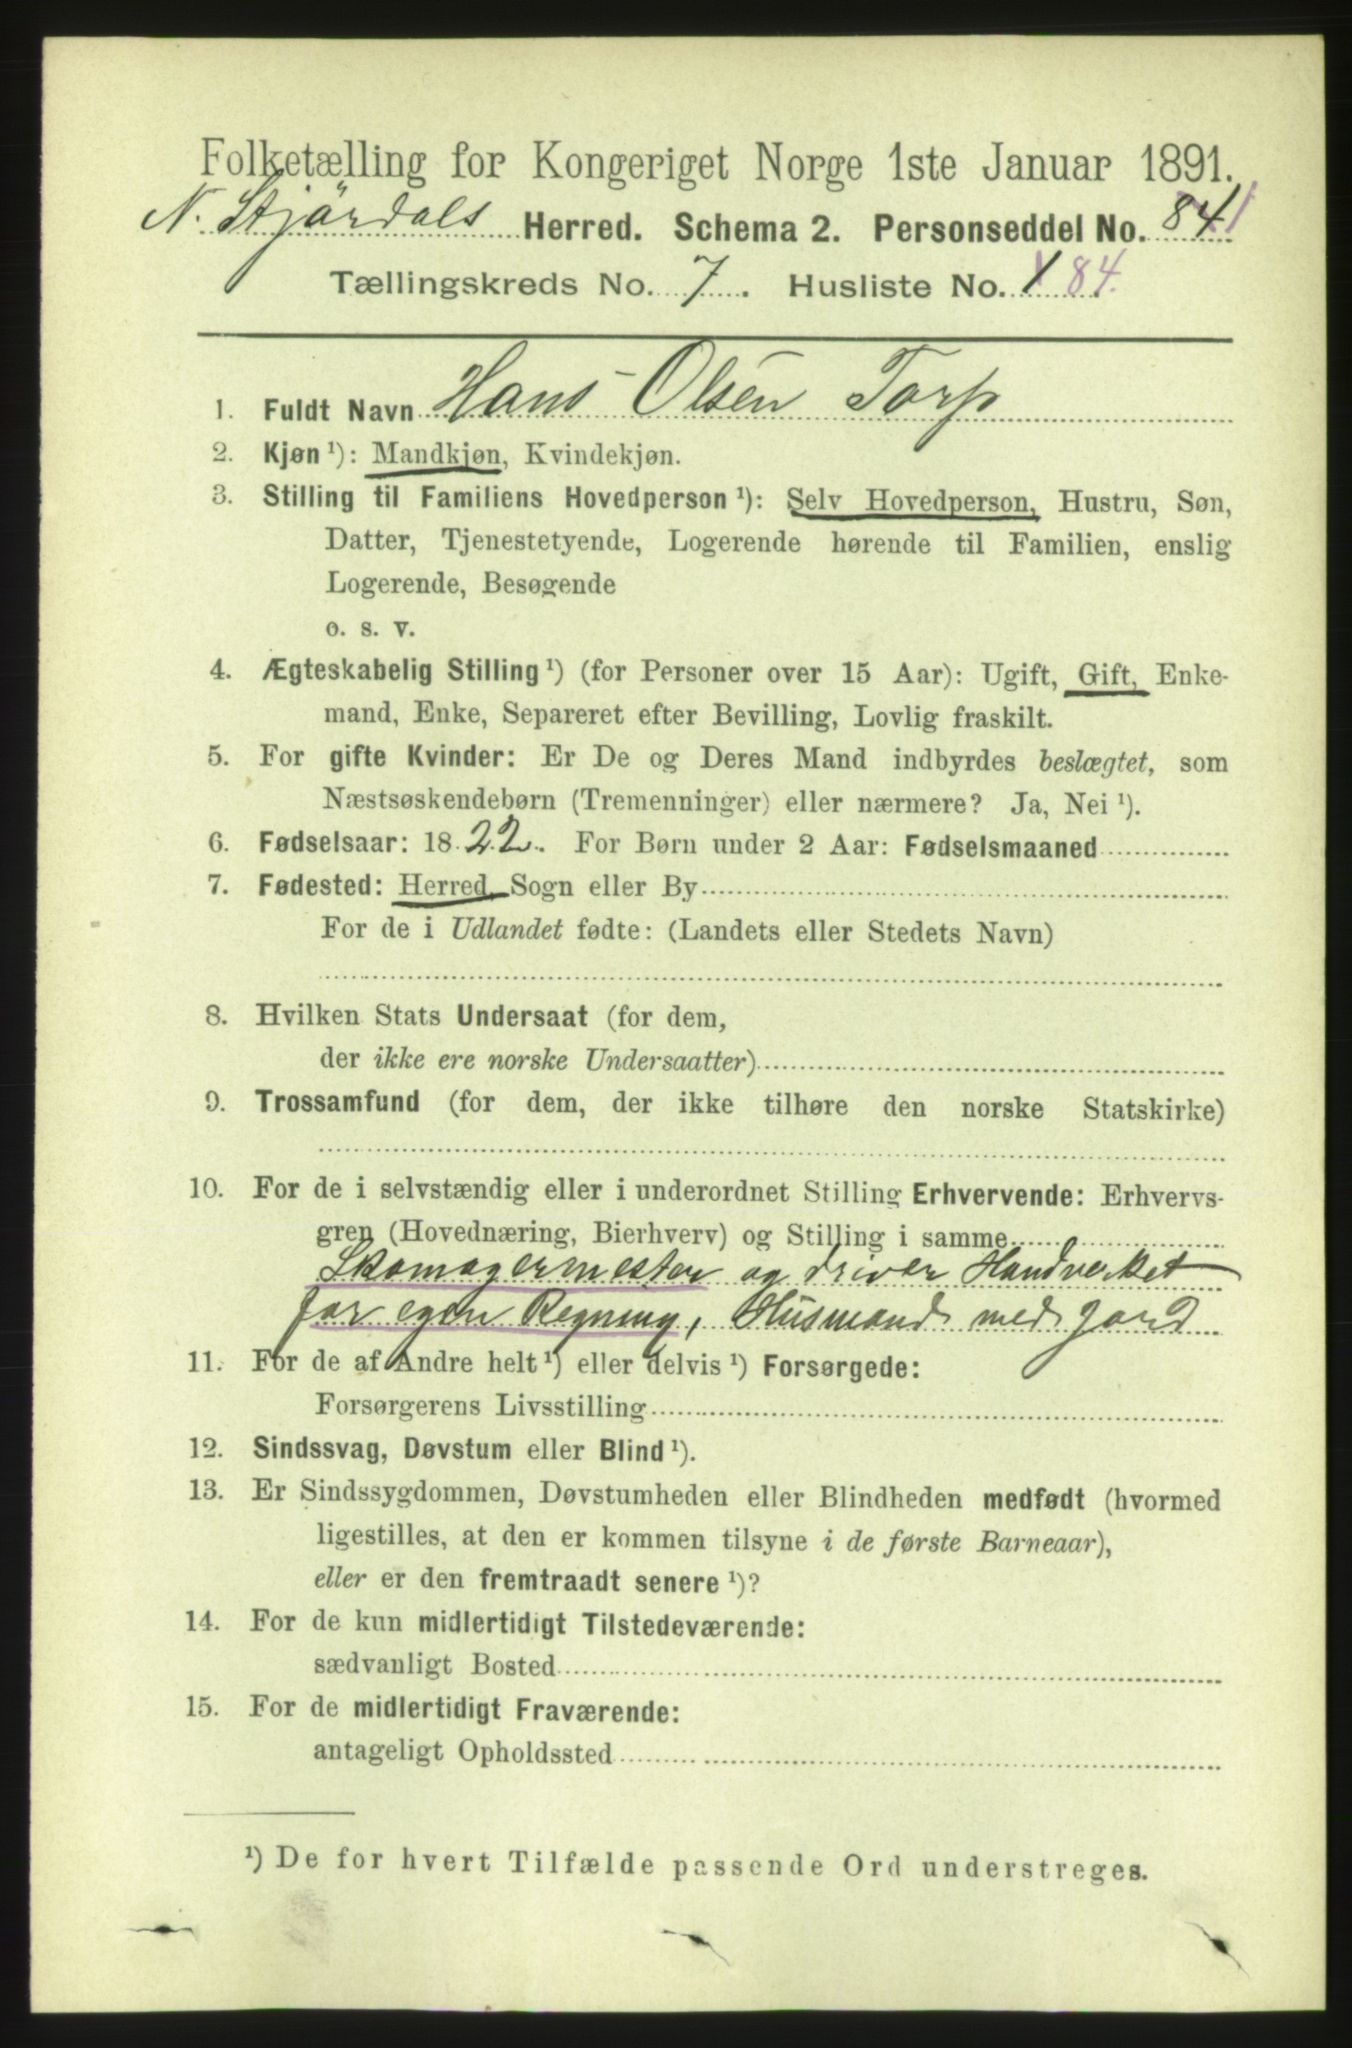 Folketælling for Kongeriget Norge 1ste Januar 1891.
N. Stjördals Herred. Schema 2. Personseddel No.
Tællingskreds No. 7. Husliste No. 1 84.
1. Fuldt Navn Hans Olsen Torp
2. Kjøn ¹): Mandkjøn, Kvindekjøn.
3. Stilling til Familiens Hovedperson ¹): Selv Hovedperson, Hustru, Søn,
Datter, Tjenestetyende, Logerende hørende til Familien, enslig
Logerende, Besøgende
o. s. v.
4. Ægteskabelig Stilling ¹) (for Personer over 15 Aar): Ugift, Gift, Enke-
mand, Enke, Separeret efter Bevilling, Lovlig fraskilt.
5. For gifte Kvinder: Er De og Deres Mand indbyrdes beslægtet, som
Næstsøskendebørn (Tremenninger) eller nærmere? Ja, Nei ¹).
6. Fødselsaar: 18 22. For Børn under 2 Aar: Fødselsmaaned
7. Fødested: Herred, Sogn eller By
For de i Udlandet fødte: (Landets eller Stedets Navn)
8. Hvilken Stats Undersaat (for dem,
der ikke ere norske Undersaatter)
9. Trossamfund (for dem, der ikke tilhøre den norske Statskirke)
10. For de i selvstændig eller i underordnet Stilling Erhvervende: Erhvervs-
gren (Hovednæring, Bierhverv) og Stilling i samme
Skomagermester og driver Handverket
for egen Regning, Husmand med jord
11. For de af Andre helt ¹) eller delvis ¹) Forsørgede:
Forsørgerens Livsstilling
12. Sindssvag, Døvstum eller Blind ¹).
13. Er Sindssygdommen, Døvstumheden eller Blindheden medfødt (hvormed
ligestilles, at den er kommen tilsyne i de første Barneaar),
eller er den fremtraadt senere ¹)?
14. For de kun midlertidigt Tilstedeværende:
sædvanligt Bosted
15. For de midlertidigt Fraværende:
antageligt Opholdssted
¹) De for hvert Tilfælde passende Ord understreges.